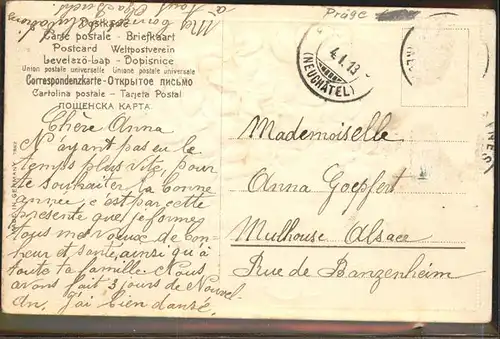 Postkarte
Carte postale - Briefkaart
Postcard Weltpostverein
Levelező-Lap - Dopisnice
Union postale universelle Unione postale universale
Correspondenzkarte - Открытое письмо
Cartolina postale - Tarjeta Postal
ПОЩЕНСКА КАРТА
4.1.13
(NEUCHÂTEL)
Chère Anna
N'ayant pas eu le
temps plus vite, pour
te souhaiter la bonne
année, c'est par cette
présente que je forme
tous mes voeux de bon
heur et santé, ainsi qu'à
toute ta famille. Nous
avons fait 3 jours de Nouvel
An. J'ai bien dansé.
Mademoiselle
Anna Goepfert
Mulhouse Alsace
Rue de Banzenheim